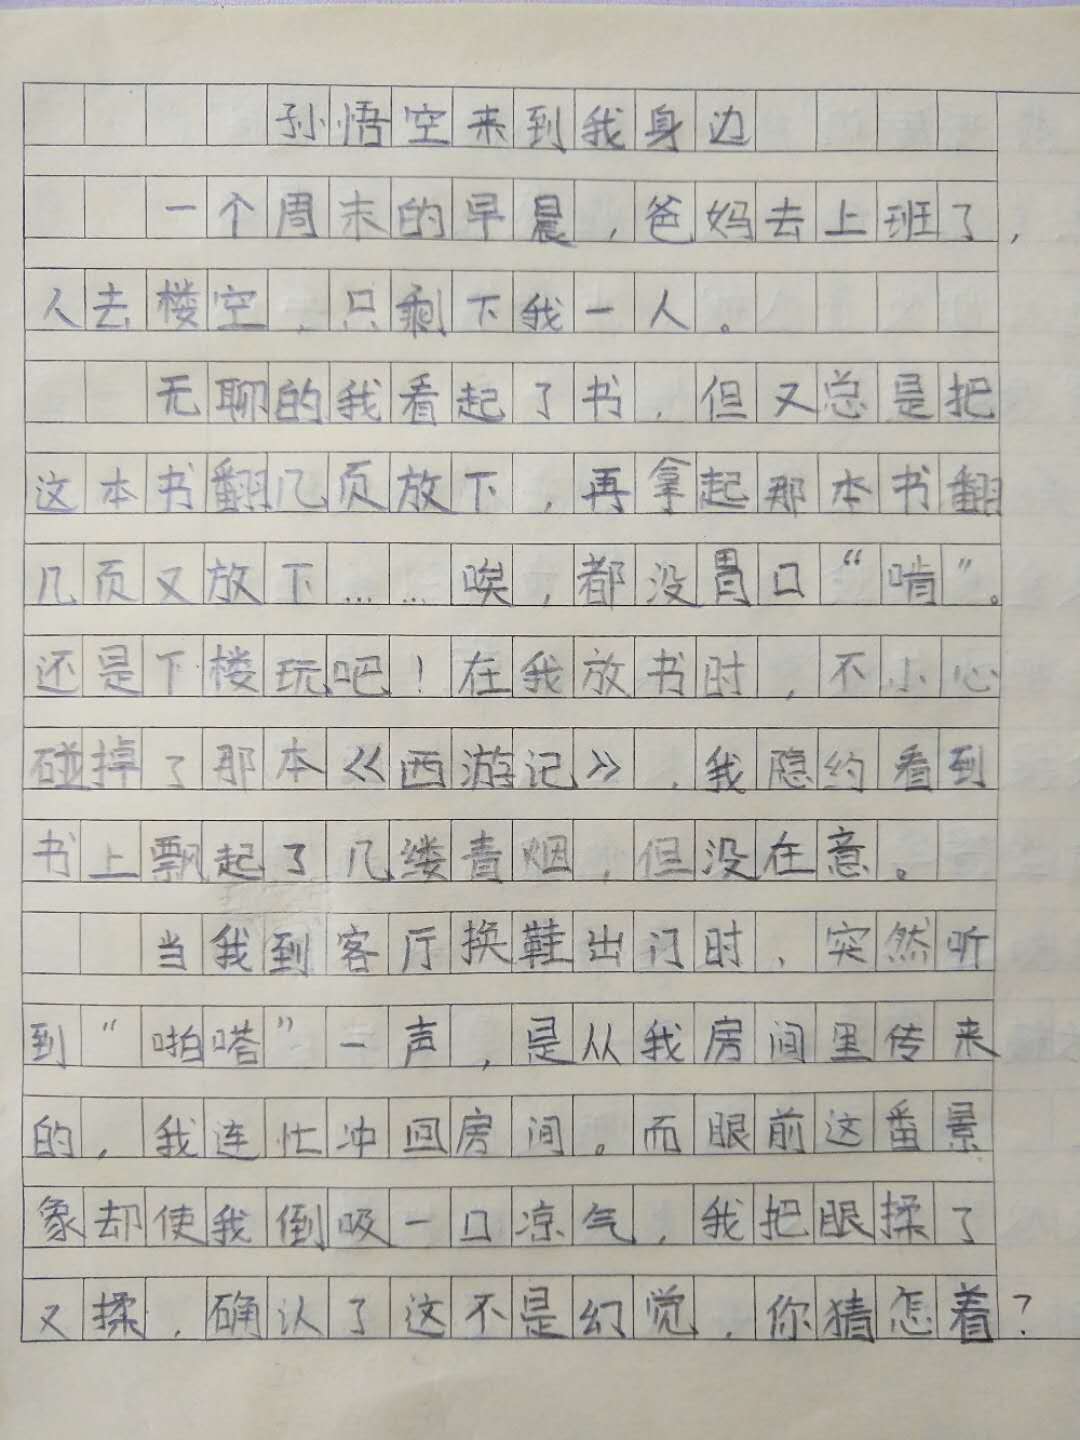 孙悟空来到我身边
一个周末的早晨，爸妈去上班了，
人去楼空，只剩下我一人。
无聊的我看起了书，但又总是把
这本书翻几页放下，再拿起那本书翻
几页又放下……唉，都没胃口“啃”。
还是下楼玩吧！在我放书时，不小心
碰掉了那本《西游记》，我隐约看到
书上飘起了几缕青烟，但没在意。
当我到客厅换鞋出门时，突然听
到“啪嗒”一声，是从我房间里传来
的，我连忙冲回房间。而眼前这番景
象却使我倒吸一口凉气，我把眼揉了
又揉，确认了这不是幻觉，你猜怎着？